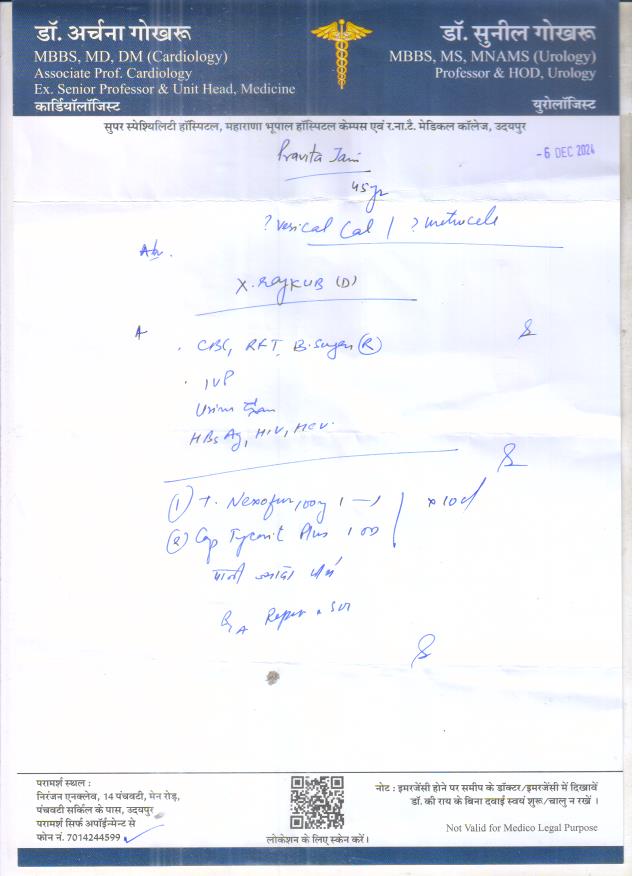 डॉ. अर्चना गोखरू
MBBS, MD, DM (Cardiology)
Associate Prof. Cardiology
Ex. Senior Professor & Unit Head, Medicine
कार्डियॉलॉजिस्ट
डॉ. सुनील गोखरू
MBBS, MS, MNAMS (Urology)
Professor & HOD, Urology
युरोलॉजिस्ट
सुपर स्पेश्यिलिटी हॉस्पिटल, महाराणा भूपाल हॉस्पिटल केम्पस एवं र.ना.टै. मेडिकल कॉलेज, उदयपुर
Jain
- 6 DEC 2024
45yr
? Vesical Cal / ?
X-Ray KUB (D)
CBC, RFT, B. Sugar (R)
IVP
Urine
HBsAg, HIV, HCV
(1) T. 100mg 1—1
x 10d
(2) Cap Plus 1 OD
पानी ज्यादा पीयें
परामर्श स्थल :
निरंजन एनक्लेव, 14 पंचवटी, मेन रोड़,
पंचवटी सर्किल के पास, उदयपुर
परामर्श सिर्फ अपॉईन्मेन्ट से
फोन नं. 7014244599
लोकेशन के लिए स्केन करें।
नोट : इमरजेंसी होने पर समीप के डॉक्टर/इमरजेंसी में दिखावें
डॉ. की राय के बिना दवाई स्वयं शुरू/चालु न रखें ।
Not Valid for Medico Legal Purpose